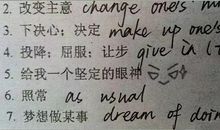 2. 改变主意 change one's
3. 下决心；决定 make up one's
4. 投降；屈服；让步 give in (
5. 给我一个坚定的眼神
6. 照常 as usual
7. 梦想做某事 dream of doin